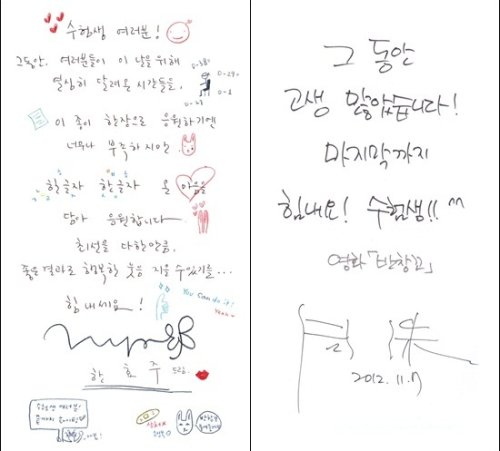 수험생 여러분!
그동안, 여러분들이 이 날을 위해
열심히 달려온 시간들을,
D-8
이 종이 한장으로 응원하기엔
너무나 부족하지만,
한글자 한글자 온 마음을
담아 응원합니다
최선을 다한만큼,
좋은결과로 행복한 웃음 지을 수 있기를...
힘 내세요!
You can do it!
Yeah~
한 효 주
수험생 여러분!
그 동안
고생 많았습니다!
마지막까지
힘내요! 수험생!! ^^
영화「반창꼬」
2012. 11. 7